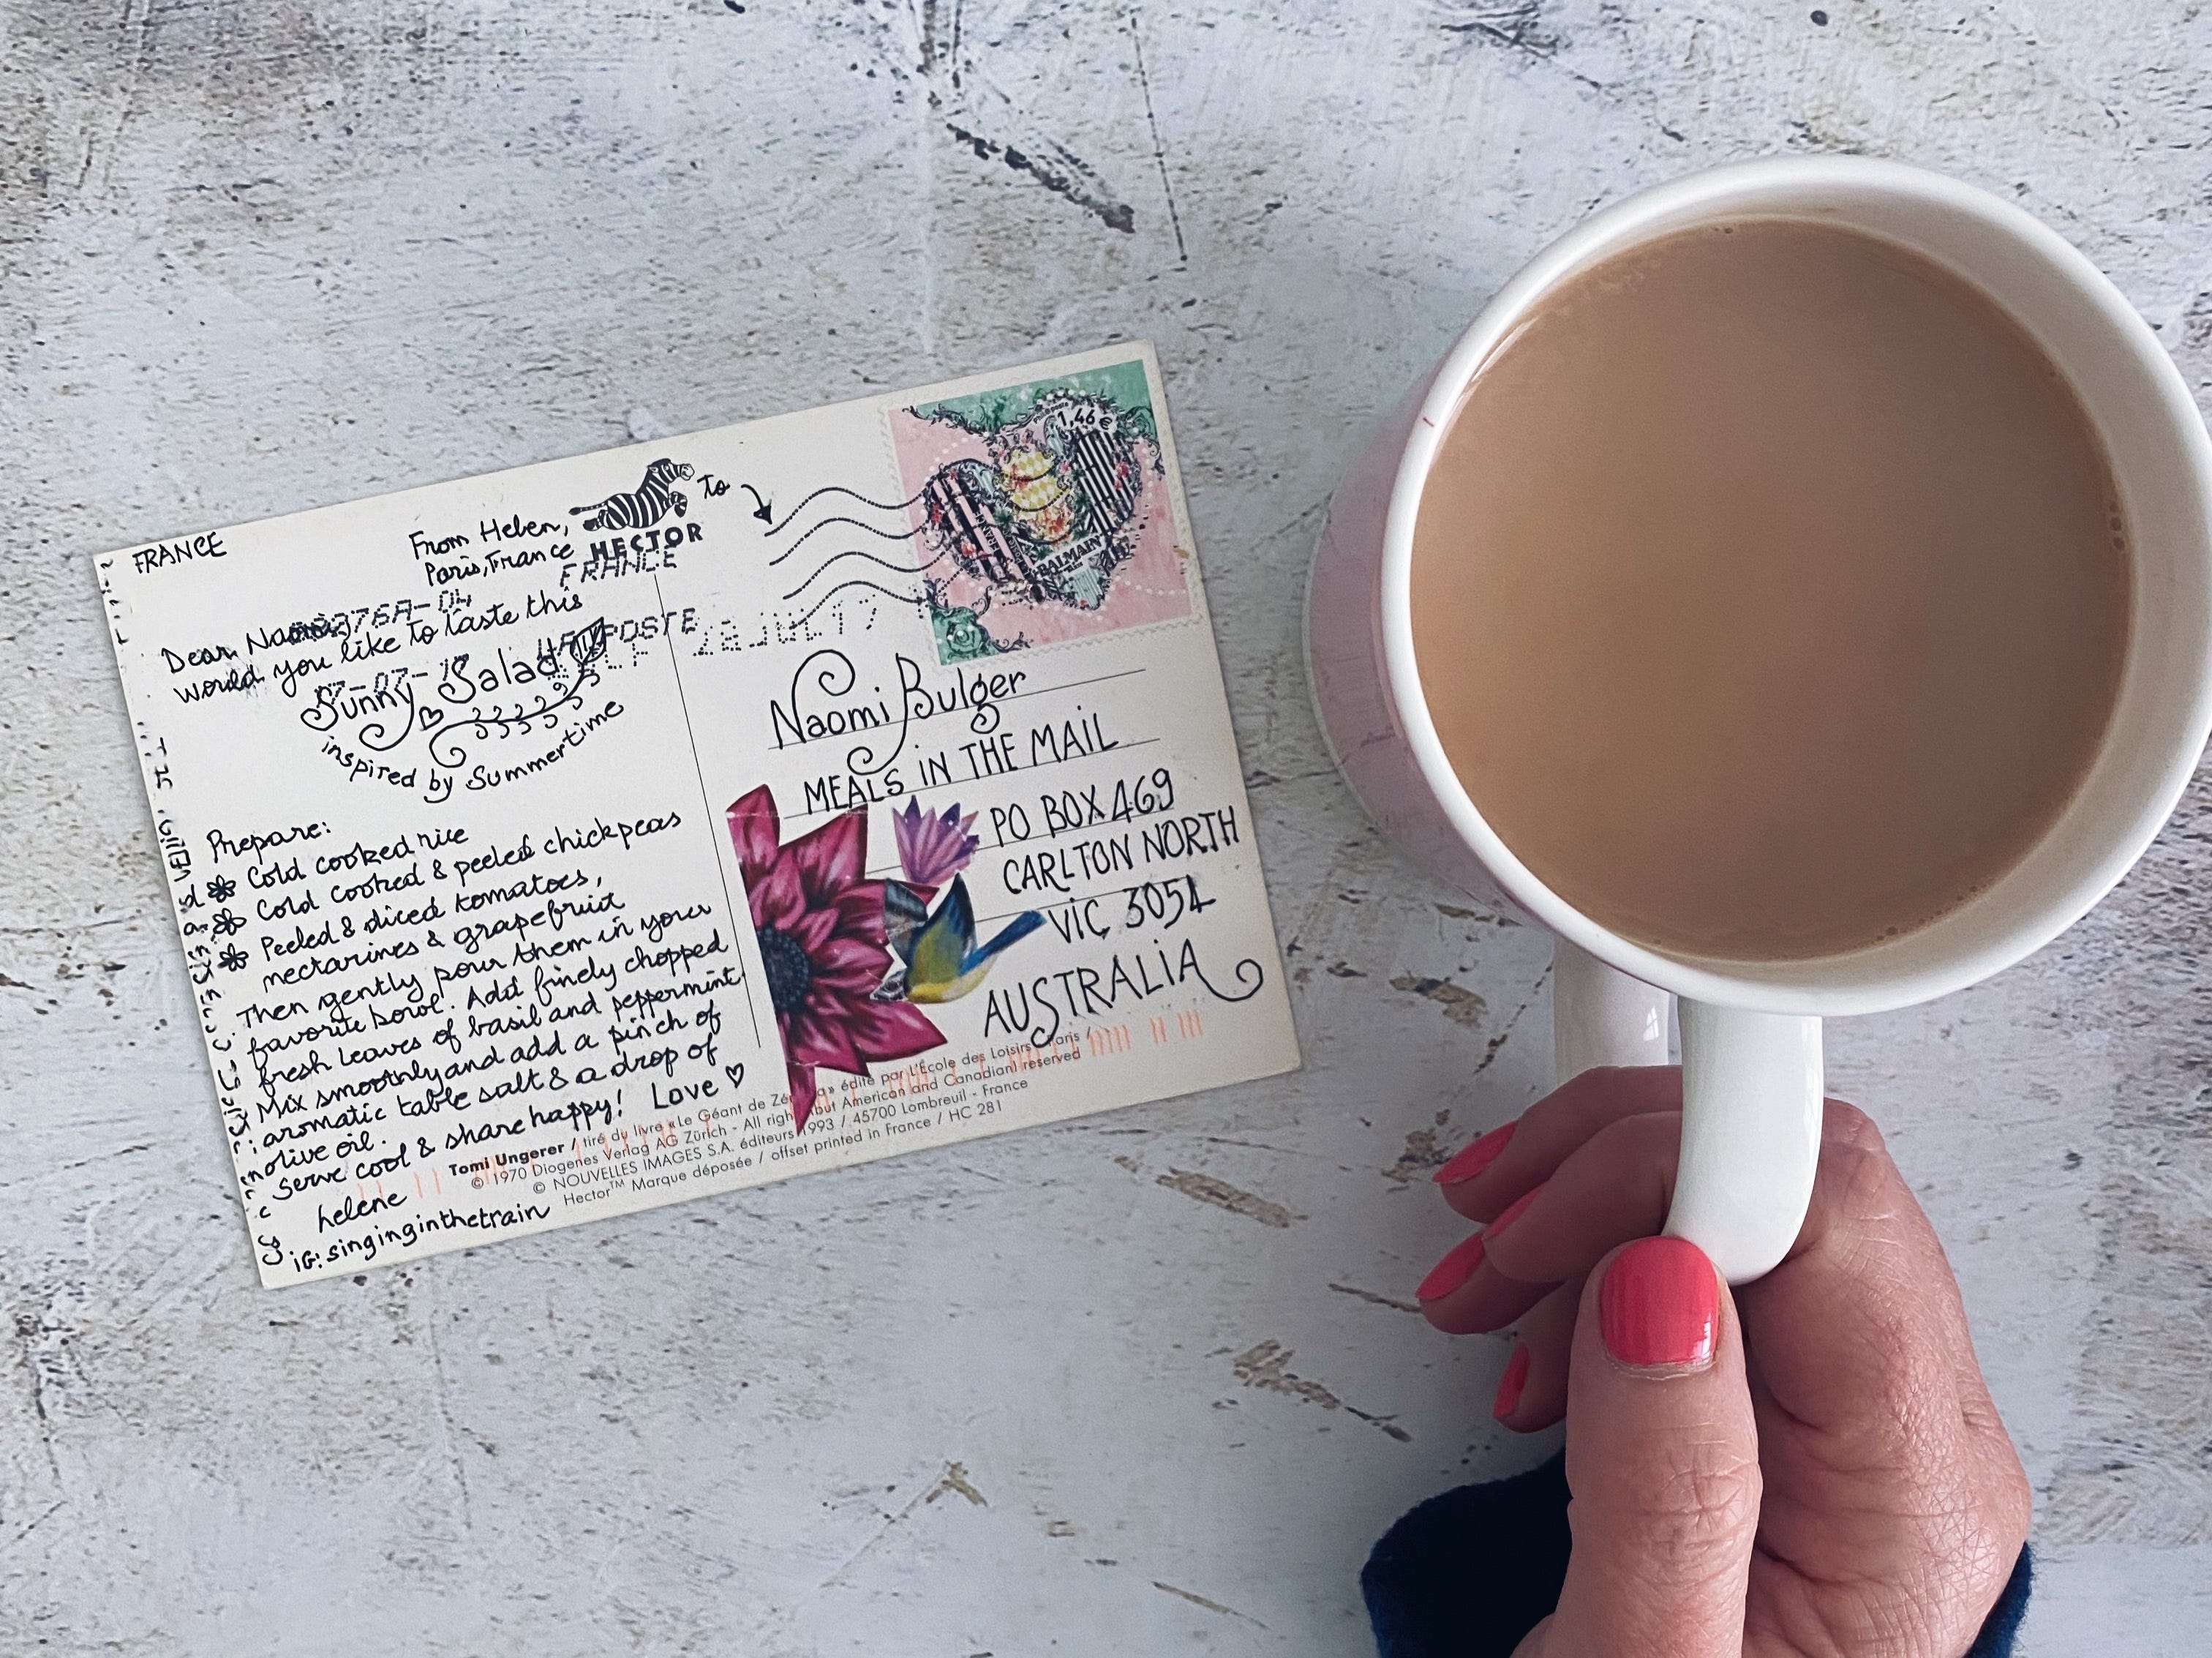 FRANCE
From Helen,
Paris, France
HECTOR
to
FRANCE
Dear Naomi,
would you like to taste this
Sunny Salad
inspired by Summertime
Prepare:
Cold cooked rice
Cold cooked & peeled chickpeas
Peeled & diced tomatoes,
nectarines & grapefruit
Then gently pour them in your
favorite bowl. Add finely chopped
fresh leaves of basil and peppermint
Mix smoothly and add a pinch of
aromatic table salt & a drop of
olive oil.
Serve cool & share happy! Love
helene
iG: singinginthetrain
1,46 €
BALMAIN
LA POSTE
28 JUL 17
Naomi Bulger
MEALS iN THE MAIL
PO BOX 469
CARLTON NORTH
ViC 3054
AUSTRALiA
Tomi Ungerer / tiré du livre «Le Géant de » édité par L'École des Loisirs, Paris /
© 1970 Diogenes Verlag AG Zürich - All rights but American and Canadian reserved
© NOUVELLES IMAGES S.A. éditeurs 1993 / 45700 Lombreuil - France
Hector™ Marque déposée / offset printed in France / HC 281